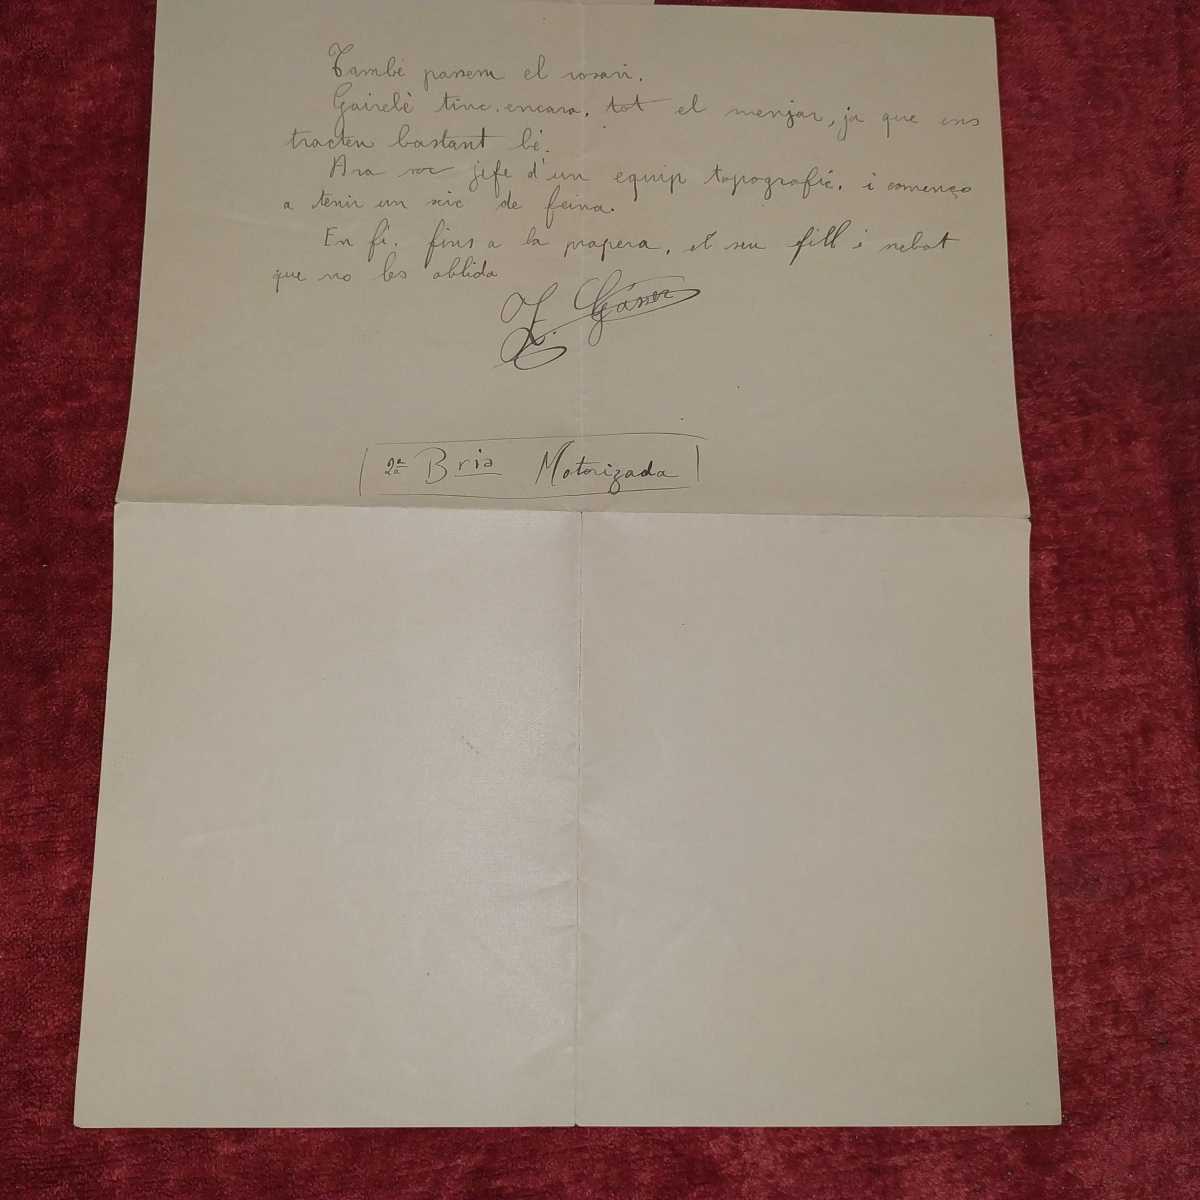 També passem el rosari.
Gairebè tinc encara, tot el menjar, ja que ens
tracten bastant bé.
Ara soc jefe d'un equip topografic, i començo
a tenir un xic de feina.
En fi, fins a la propera, el seu fill i nebot
que no les oblida
2ª Bria Motorizada